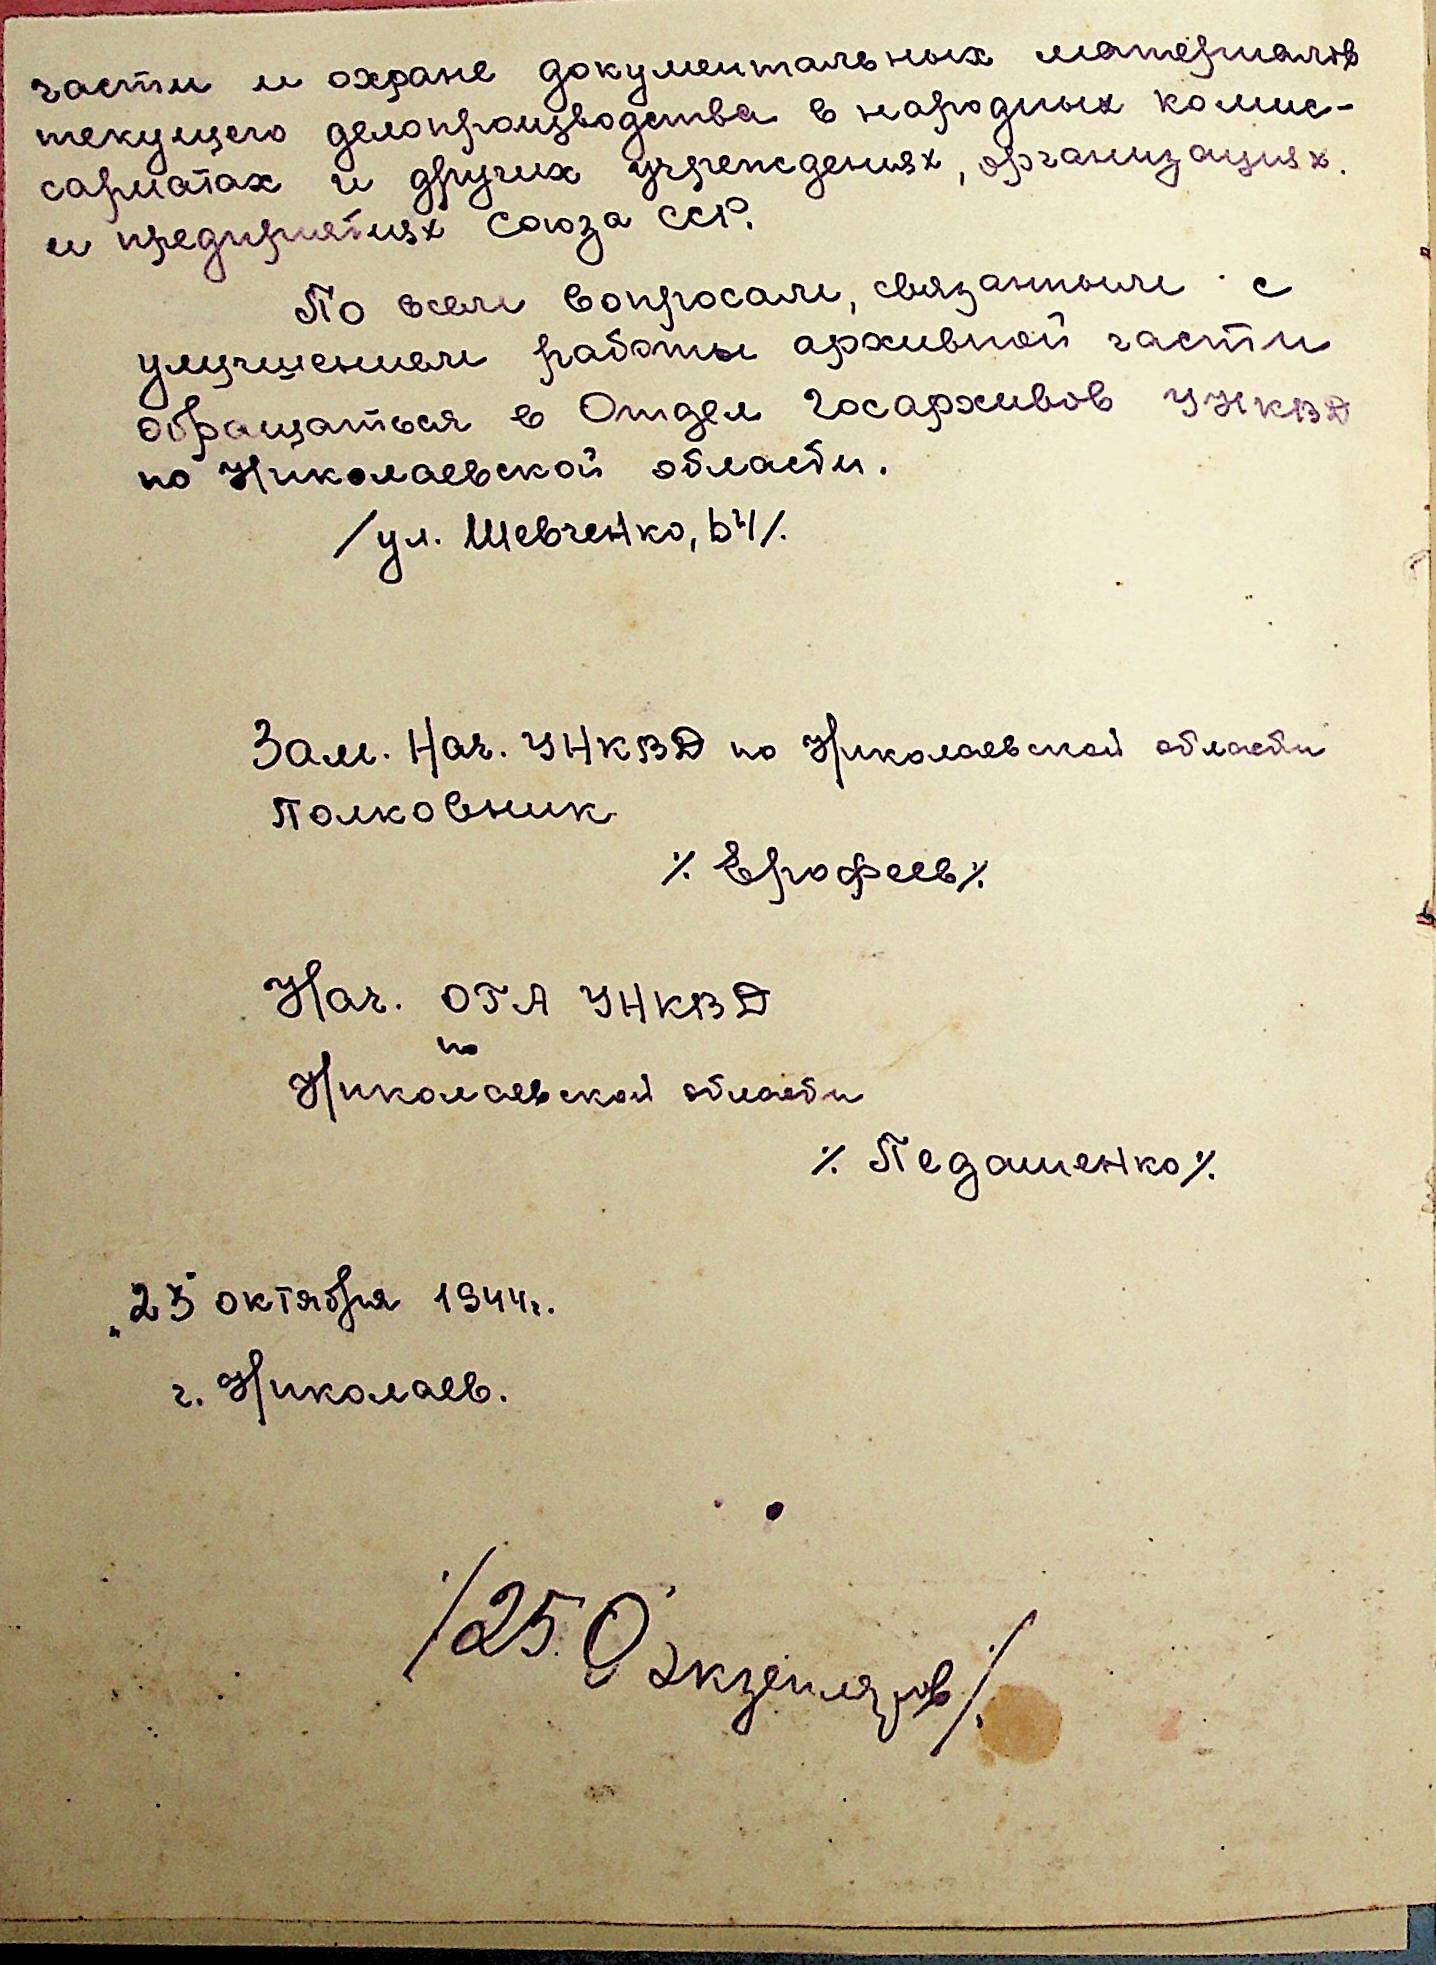 части и охране документальных материалов
текущего делопроизводства в народных комис-
сариатах и других учреждениях, организациях.
и предприятиях Союза ССР.
По всем вопросам, связанным с
улучшением работы архивной части
обращаться в Отдел Госархивов УНКВД
по Николаевской области.
/ул. Шевченко, 64/.
Зам. Нач. УНКВД по Николаевской области
Полковник
/. Ерофеев/.
Нач. ОГА УНКВД
по
Николаевской области
/. Педашенко/.
„25" октября 1944г.
г. Николаев.
/250 экземпляров/.